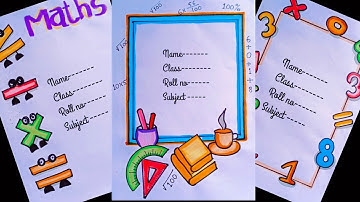 Maths
Name-------
Class-------
Roll no------
Subject-----
√100
100%
6+0+1+8
Name-------
Class-------
Roll no------
Subject -----
√100
Name-------
Class-------
Roll no------
Subject-----
3
0
3
8
1
=